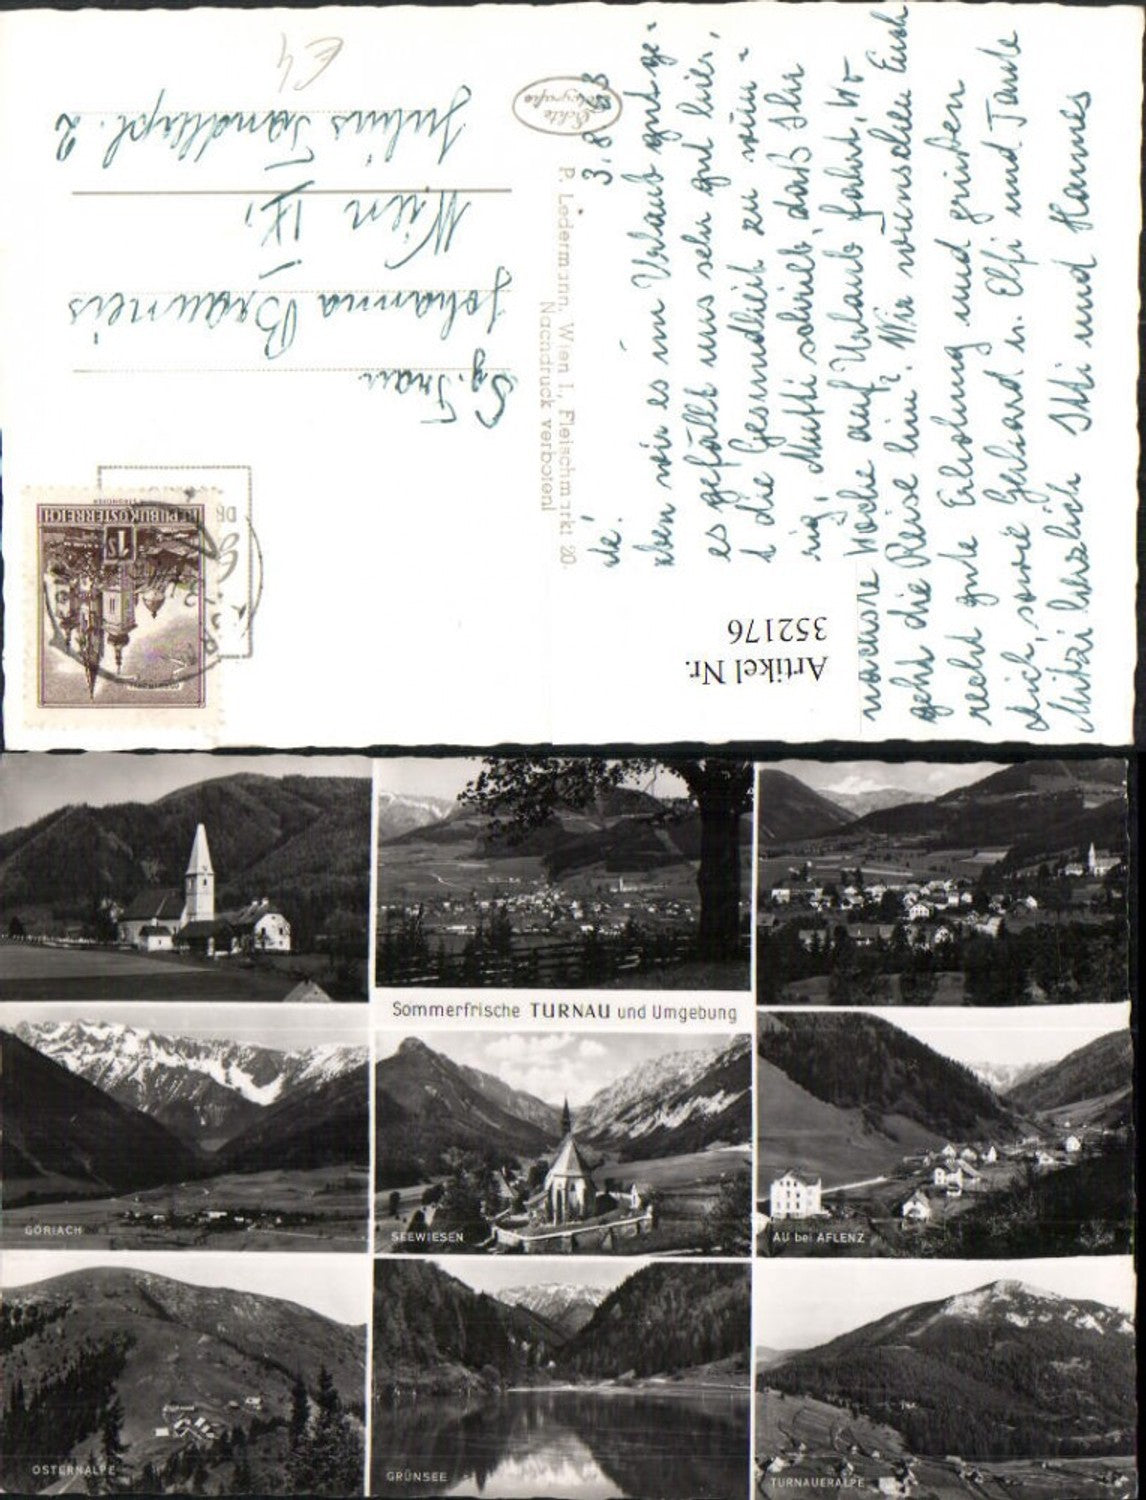 €4
Echte
Fotografie
Sg. Frau
Johanna Brauneis
Wien IX,
Julius Tandlerpl. 2
REPUBLIK ÖSTERREICH
P. Ledermann, Wien I., Fleischmarkt 20.
Nachdruck verboten!
Artikel Nr.
352176
3. 8.
wir es im Urlaub gut ge-
es gefällt uns sehr gut hier,
die Gesundheit zu wün-
Mutti schrieb, daß Ihr
Woche auf Urlaub fahrt, wo
geht die Reise hin? Wir wünschen Euch
recht gute Erholung und grüßen
Dich, sowie Gerhard u. Elfi und Tante
Mitzi herzlich Itti und Hannes
Sommerfrische TURNAU und Umgebung
GÖRIACH
SEEWIESEN
AU bei AFLENZ
OSTERNALPE
GRÜNSEE
TURNAUERALPE